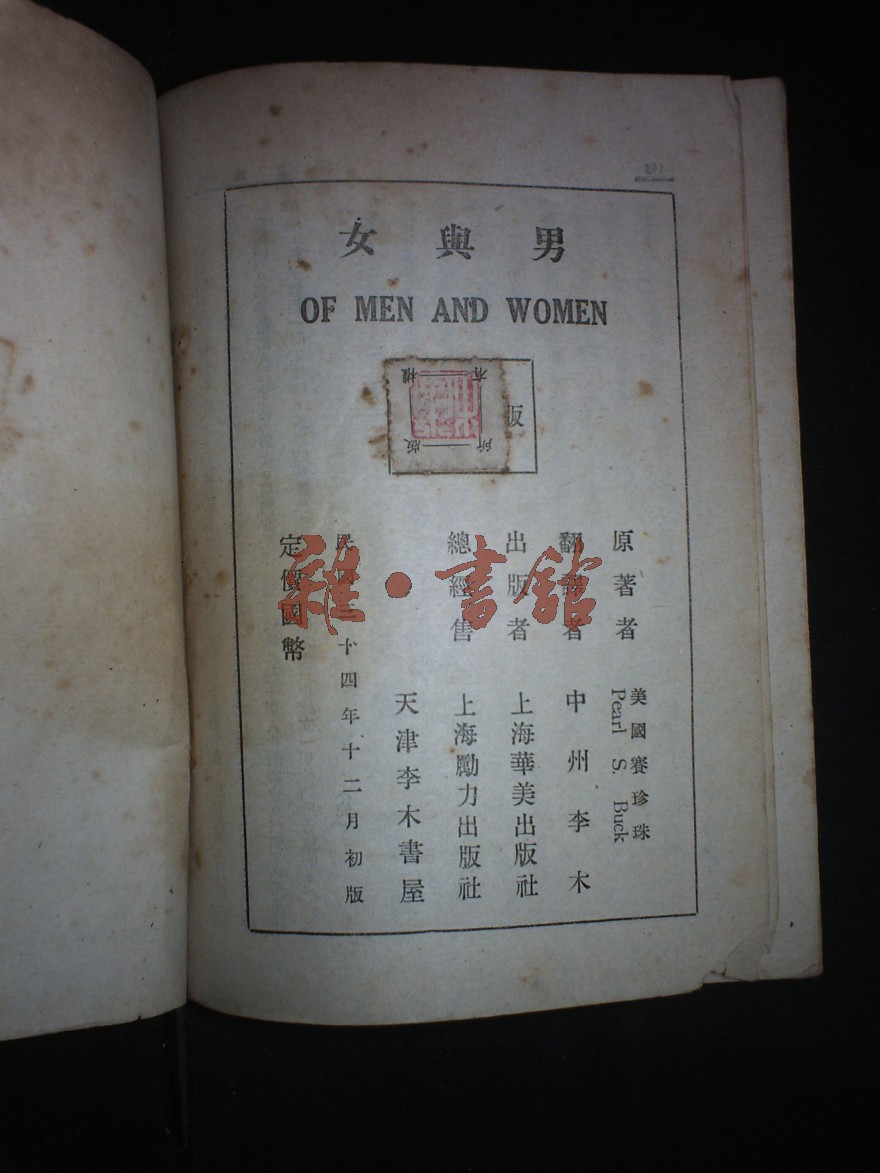 男與女
OF MEN AND WOMEN
版
權
有
版
所
原著者 美國賽珍珠
Pearl S. Buck
翻譯者 中州李木
出版者 上海華美出版社
總經售 上海勵力出版社
天津李木書屋
民國 十四年十二月初版
定價國幣
雜·書館